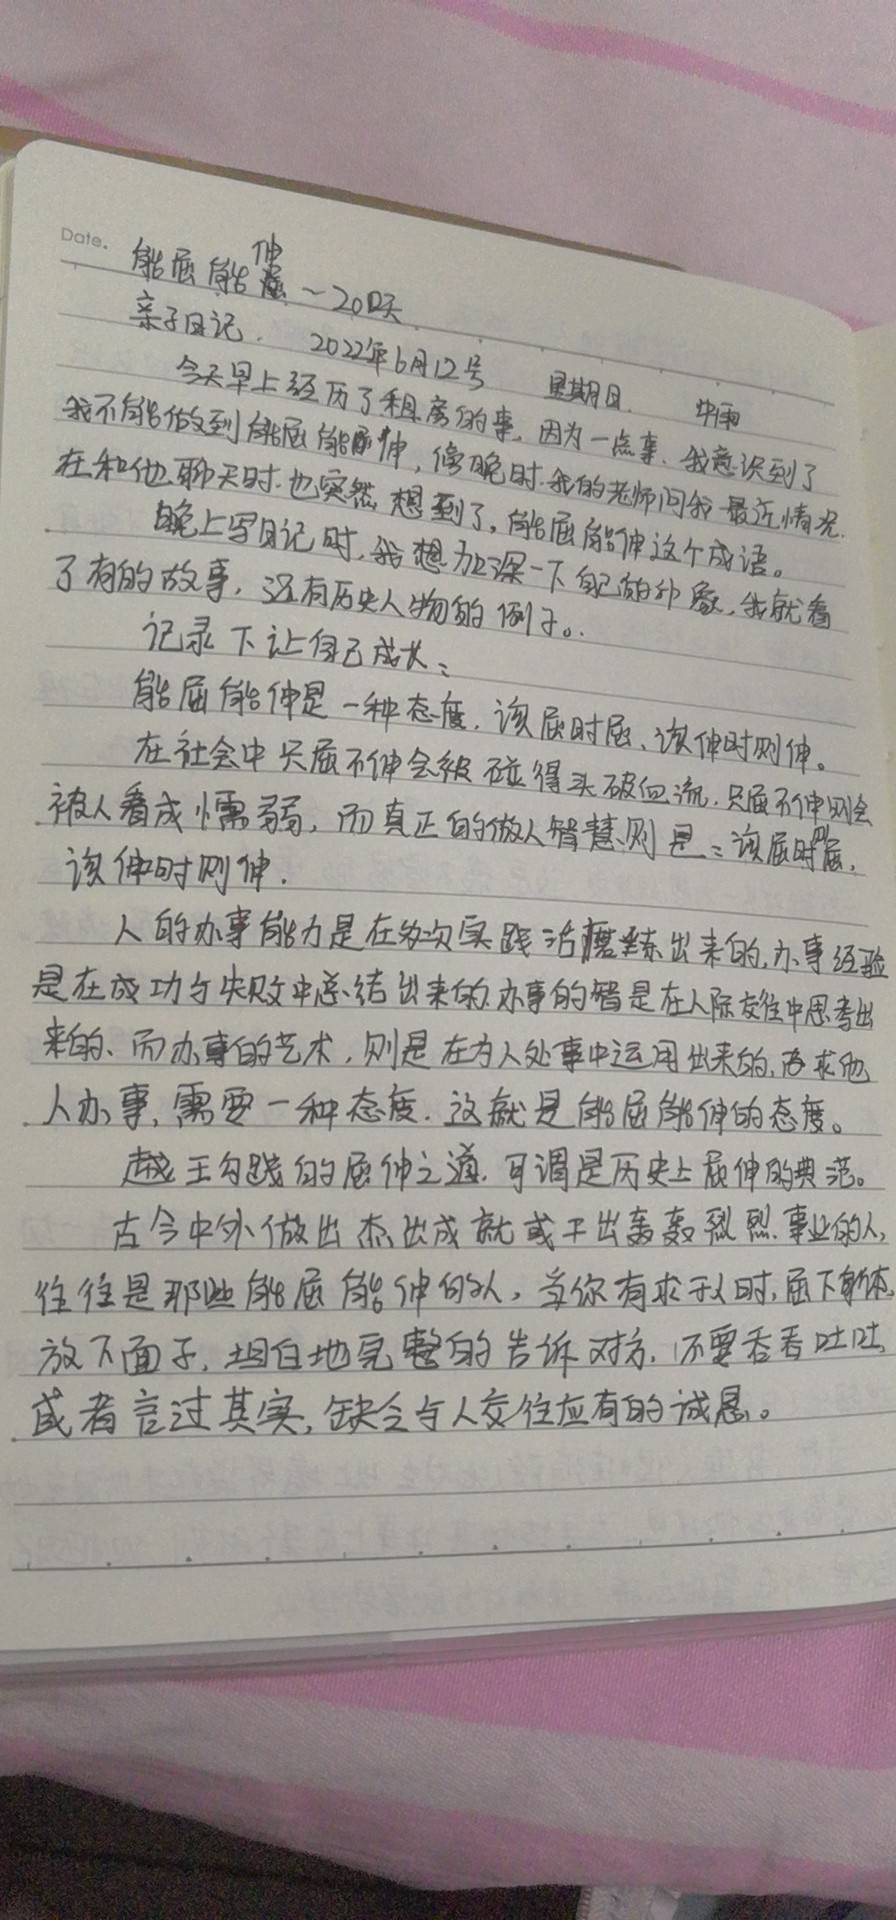 Date.
能屈能伸~20天
亲子日记. 2022年6月12号 星期日. 中雨
今天早上经历了租房的事,因为一点事.我意识到了
我不能做到能屈能伸,傍晚时.我的老师问我最近情况.
在和他聊天时.也突然想到了,能屈能伸这个成语。
晚上写日记时,我想加深一下自己的印象,我就看
了有的故事,还有历史人物的例子。
记录下让自己成长:
能屈能伸是一种态度.该屈时屈、该伸时则伸。
在社会中只屈不伸会被碰得头破血流.只屈不伸则会
被人看成懦弱,而真正的做人智慧则是:该屈时则屈,
该伸时则伸.
人的办事能力是在多次实践活磨练出来的,办事经验
是在成功与失败中总结出来的.办事的智是在人际交往中思考出
来的、而办事的艺术,则是在为人处事中运用出来的,求他
人办事,需要一种态度.这就是能屈能伸的态度。
越王勾践的屈伸之道.可谓是历史上屈伸的典范。
古今中外做出杰出成就或干出轰轰烈烈事业的人,
往往是那些能屈能伸的人,当你有求于人时,屈下身体,
放下面子,坦白地完整的告诉对方.不要吞吞吐吐,
或者言过其实,缺乏与人交往应有的诚恳。